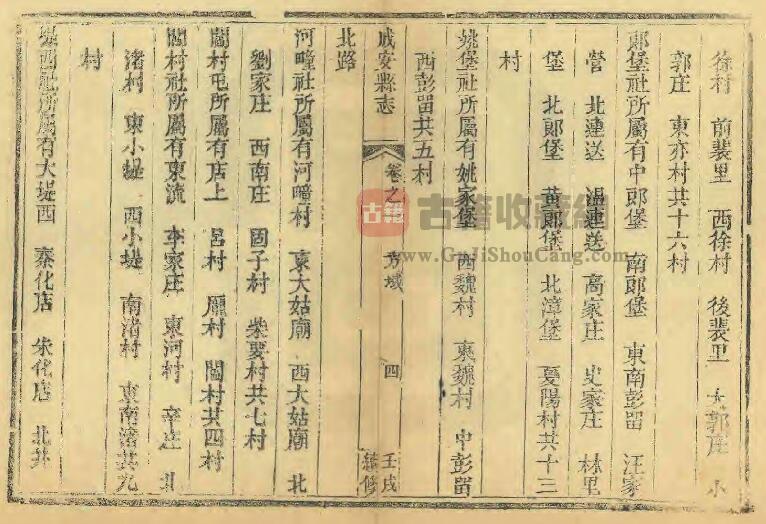 徐村　前裴里　西徐村　後裴里　大郭庄　小
郭庄　東亦村共十六村
郎堡社所屬有中郎堡　南郎堡　東南彭留　汪家
營　北連送　温連送　高家庄　史家庄　林里
堡　北郎堡　黃郎堡　北漳堡　夏陽村共十三
村
姚堡社所屬有姚家堡　西魏村　東魏村　中彭留
西彭留共五村
成安縣志　卷之　方域　四　壬戌續修
北路
河疃社所屬有河疃村　東大姑廟　西大姑廟　北
劉家庄　西南庄　固子村　柴要村共七村
閻村屯所屬有店上　呂村　龐村　閻村共四村
閻村社所屬有東流　李家庄　東河村　辛庄　北
渚村　東小堤　西小堤　南渚村　東南渚共九
村
堤西社所屬有大堤西　秦化店　朱化店　北井
古籍
古籍收藏網
www.GuJiShouCang.com